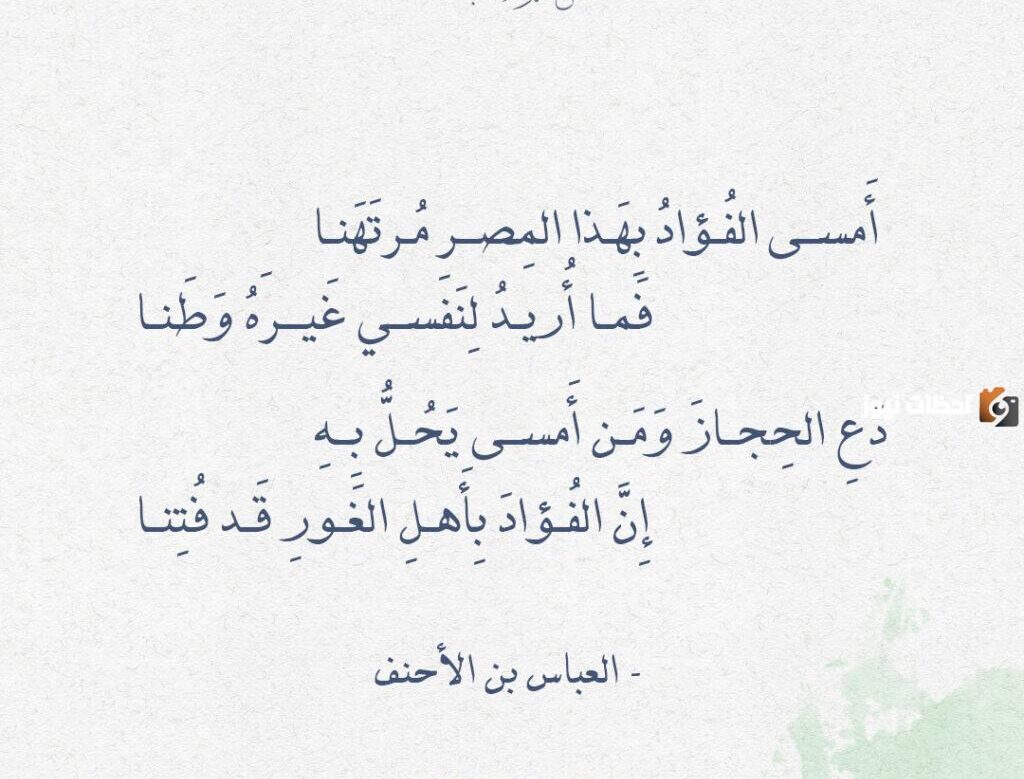 أَمسى الفُؤادُ بِهَذا المِصرِ مُرتَهَنا
فَما أُريدُ لِنَفسي غَيرَهُ وَطَنا
دَعِ الحِجازَ وَمَن أَمسى يَحُلُّ بِهِ
إِنَّ الفُؤادَ بِأَهلِ الغَورِ قَد فُتِنا
- العباس بن الأحنف